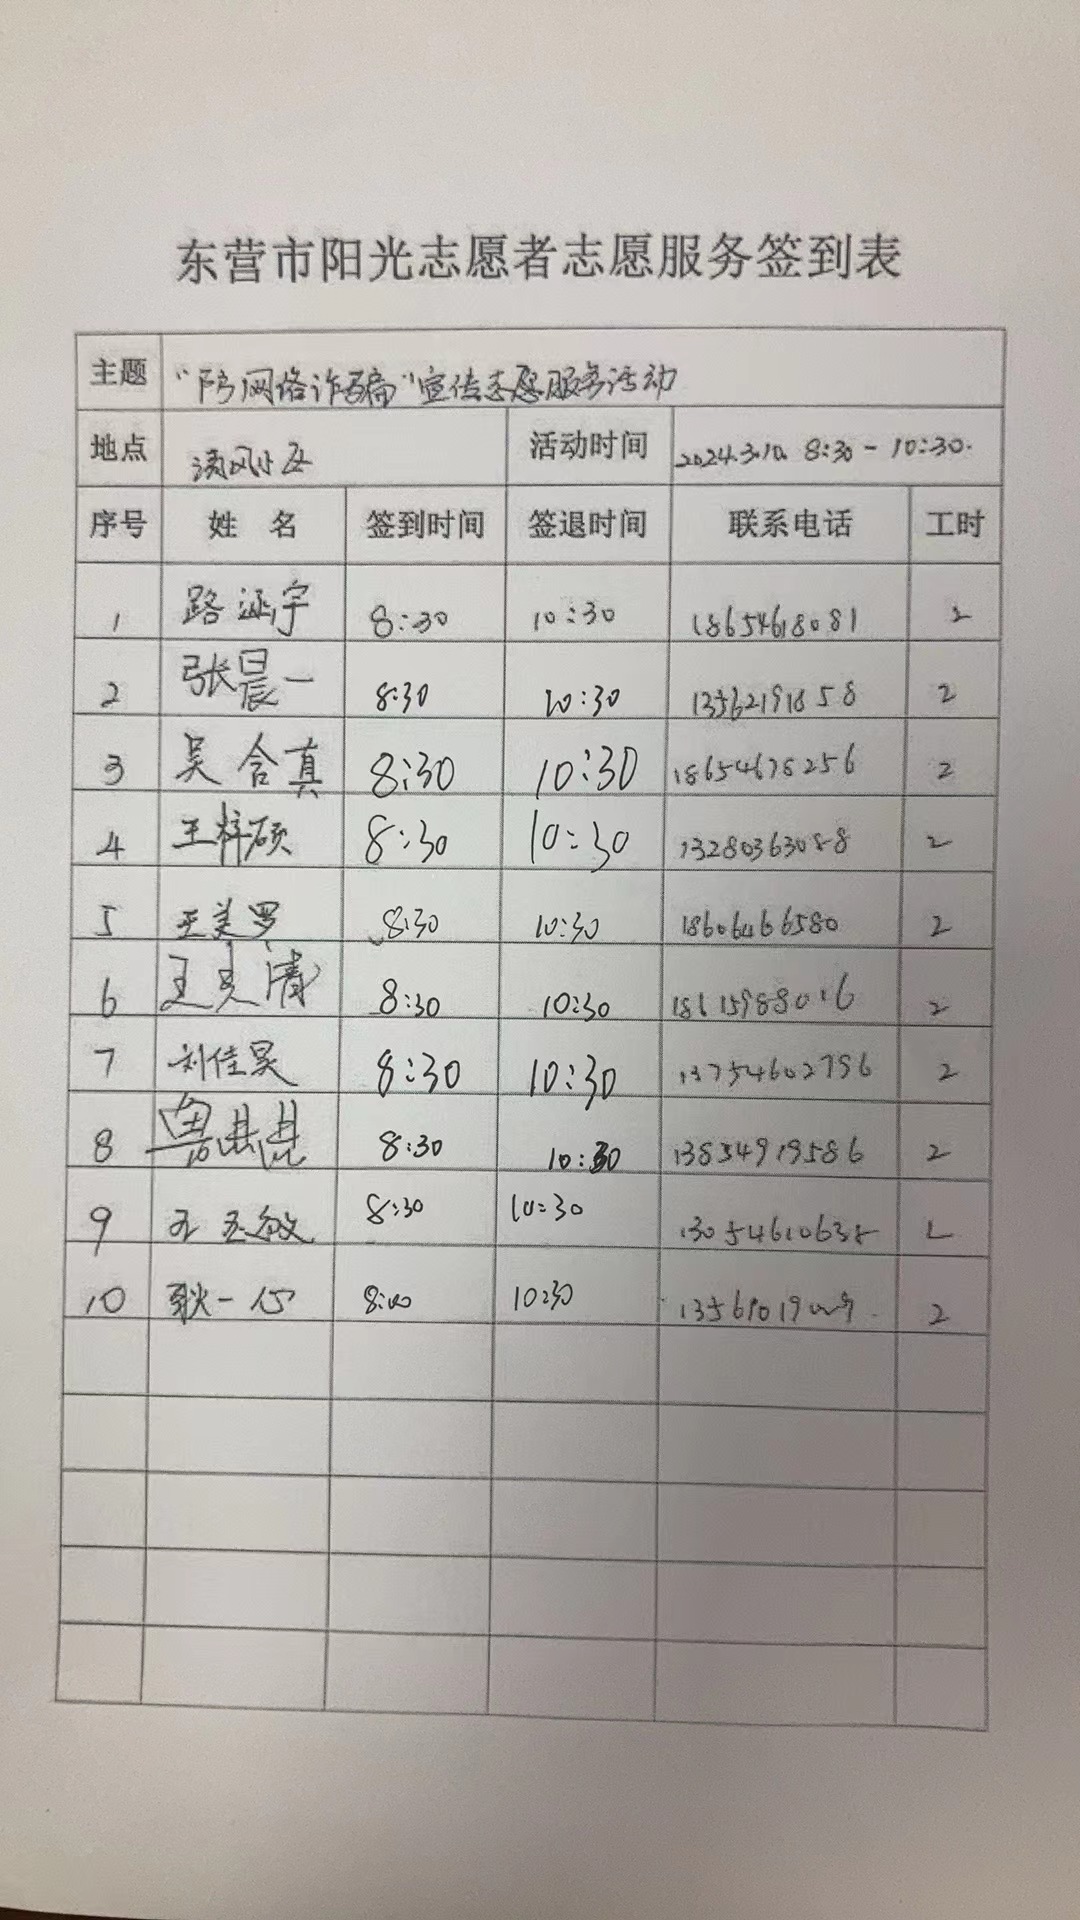 东营市阳光志愿者志愿服务签到表
主题 “防网络诈骗”宣传志愿服务活动
地点 清风小区 活动时间 2024.3.10. 8:30-10:30.
序号 姓名 签到时间 签退时间 联系电话 工时
1 路 宇 8:30 10:30 18654618081 2
2 张晨一 8:30 10:30 13562191858 2
3 吴含真 8:30 10:30 18654678256 2
4 王梓硕 8:30 10:30 13280363088 2
5 王美罗 8:30 10:30 18606466580 2
6 王 清 8:30 10:30 18615988016 2
7 刘佳昊 8:30 10:30 13754602756 2
8 鲁 8:30 10:30 13854919586 2
9 王玉敏 8:30 10:30 2
10 耿一心 8:00 10:30 2